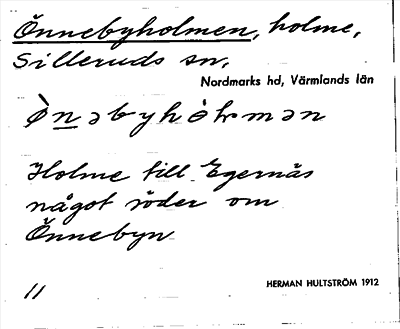 Önnebyholmen, holme,
Silleruds sn,
Nordmarks hd, Värmlands län
Holme till Egernäs
något söder om
Önnebyn
11
HERMAN HULTSTRÖM 1912